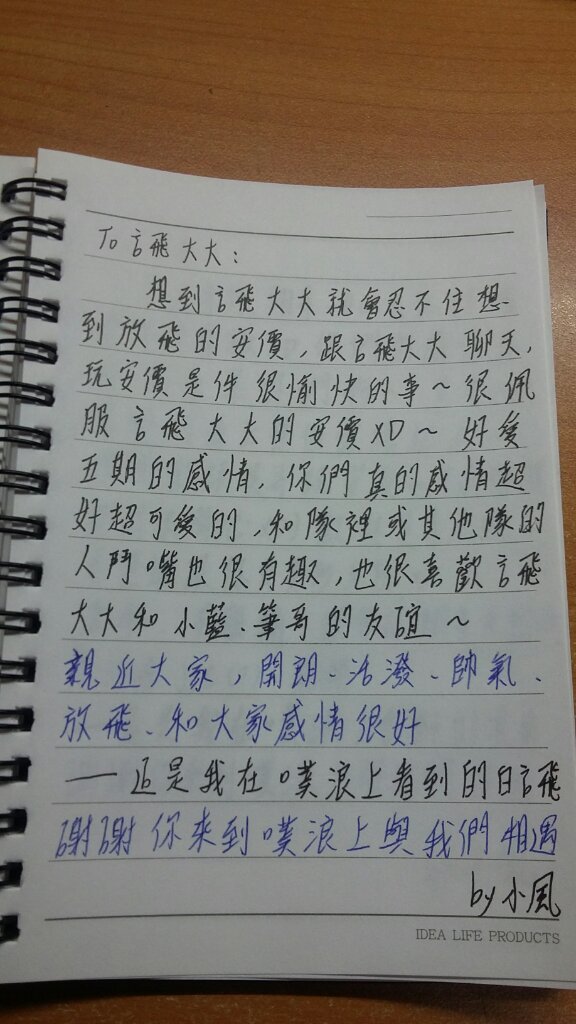 To 言飛大大：
想到言飛大大就會忍不住想
到放飛的安價，跟言飛大大聊天，
玩安價是件很愉快的事～很佩
服言飛大大的安價XD～好愛
五期的感情，你們真的感情超
好超可愛的，和隊裡或其他隊的
人鬥嘴也很有趣，也很喜歡言飛
大大和小藍、筆哥的友誼～
親近大家，開朗、活潑、帥氣、
放飛、和大家感情很好
——這是我在噗浪上看到的白言飛
謝謝你來到噗浪上與我們相遇
by小風
IDEA LIFE PRODUCTS